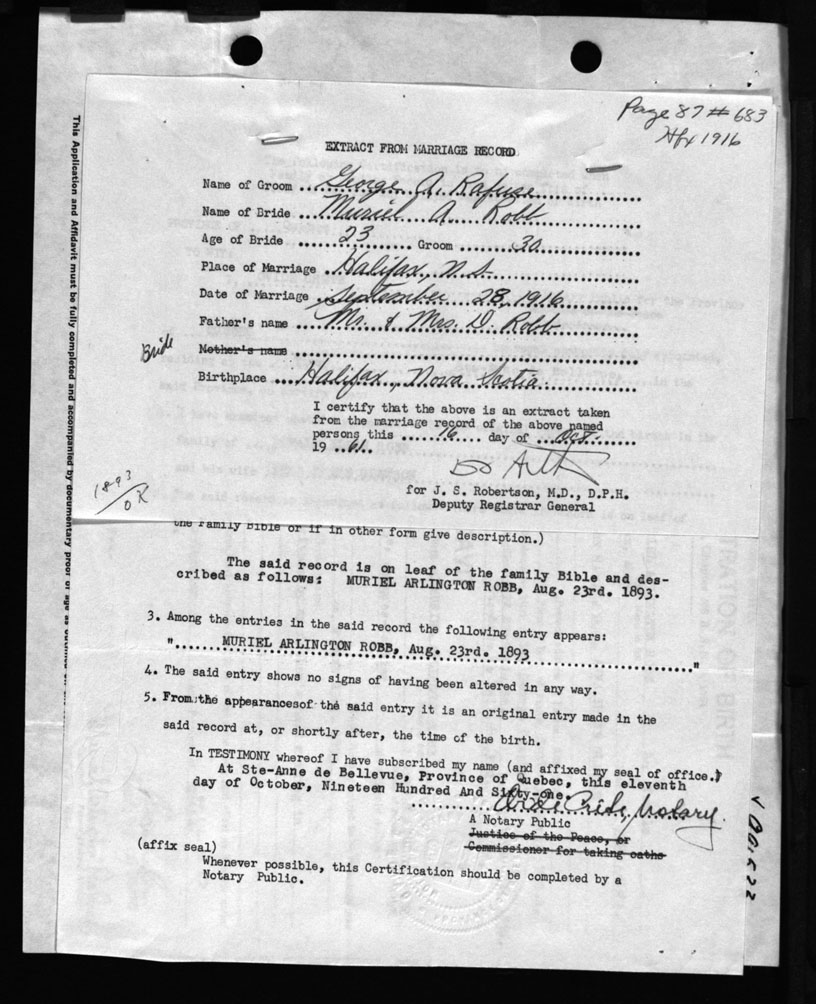 Page 87 # 683
Hfx 1916
EXTRACT FROM MARRIAGE RECORD
Name of Groom ... George A. Rafuse
Name of Bride ... Muriel A. Robb
Age of Bride ...... 23 ........ Groom ........ 30
Place of Marriage .. Halifax, N.S.
Date of Marriage .. September 28, 1916
Father's name ..... Mr. & Mrs. D. Robb
Bride
Mother's name
Birthplace .... Halifax, Nova Scotia
I certify that the above is an extract taken
from the marriage record of the above named
persons this ..... 16 .... day of ... Oct.
19 ..61..
for J. S. Robertson, M.D., D.P.H.
Deputy Registrar General
1893
OK
the Family Bible or if in other form give description.)
The said record is on leaf of the family Bible and des-
cribed as follows: MURIEL ARLINGTON ROBB, Aug. 23rd. 1893.
3. Among the entries in the said record the following entry appears:
"....... MURIEL ARLINGTON ROBB, Aug. 23rd. 1893 ......."
4. The said entry shows no signs of having been altered in any way.
5. From the appearances of the said entry it is an original entry made in the
said record at, or shortly after, the time of the birth.
In TESTIMONY whereof I have subscribed my name (and affixed my seal of office.)
At Ste-Anne de Bellevue, Province of Quebec, this eleventh
day of October, Nineteen Hundred And Sixty-one.
Notary.
A Notary Public
Justice of the Peace, or
Commissioner for taking oaths
(affix seal)
Whenever possible, this Certification should be completed by a
Notary Public.
This Application and Affidavit must be fully completed and accompanied by documentary proof of age as outlined on the